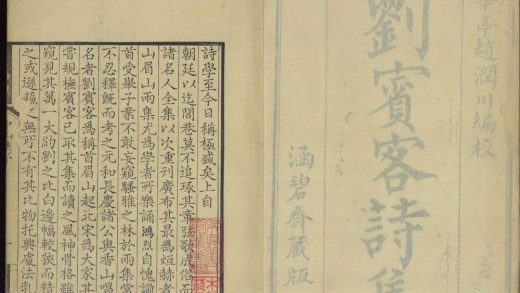 華亭趙潤川編校
劉賓客詩集
涵碧齋藏版
詩學至今日稱極盛矣上自
朝廷以迄閭巷莫不追琢其章弦歌成俗而
諸名人全集以次重刊廣布其最爲烜赫者
山眉山兩集尤爲學者所樂誦鴻烈自愧謭
首受舉子業不敢妄窺騷雅之林於兩集嘗
不忍釋旣而考之元和長慶諸公與香山唱
名者劉賓客爲稱首眉山起北宋爲大家其
嘗規橅賓客已取其集而讀之風神骨格雖
窺見其萬一大約劉之比白邊幅較狹而精
之或遜蘇之無所不有其比物托興處法乳